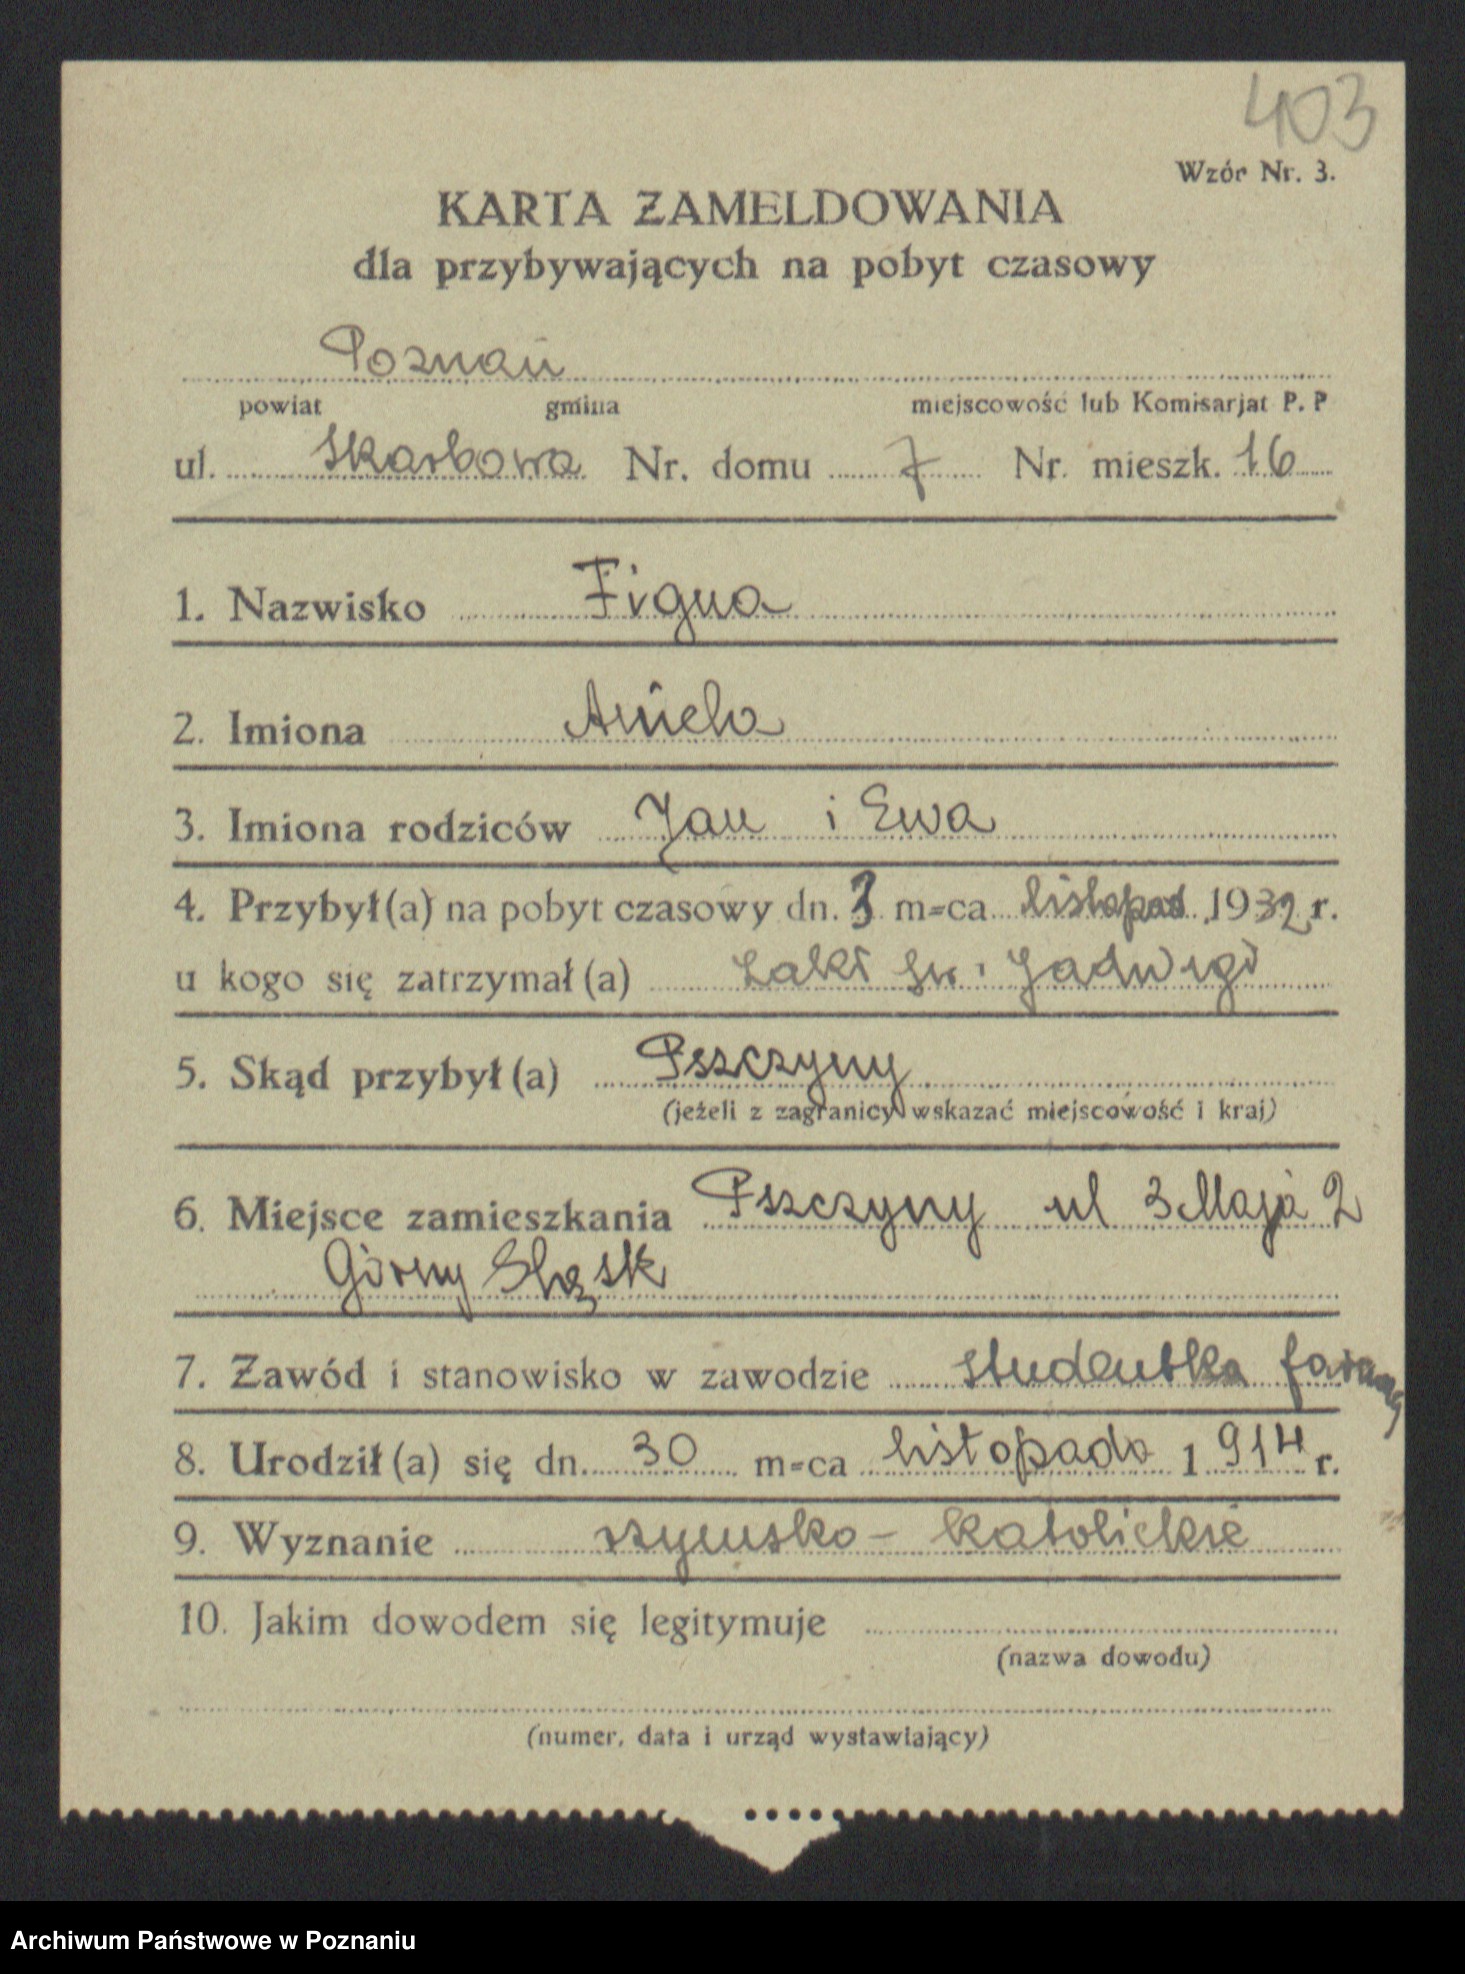 403
Wzór Nr. 3.
KARTA ZAMELDOWANIA
dla przybywających na pobyt czasowy
Poznań
powiat gmina miejscowość lub Komisarjat P. P
ul. Skarbowa Nr. domu 7 Nr. mieszk. 16
1. Nazwisko Figna
2. Imiona Aniela
3. Imiona rodziców Jan i Ewa
4. Przybył(a) na pobyt czasowy dn. 3 m=ca listopad 1932 r.
u kogo się zatrzymał(a) Jadwigi
5. Skąd przybył(a) Pszczyny
(jeżeli z zagranicy wskazać miejscowość i kraj)
6. Miejsce zamieszkania Pszczyny ul 3 Maja 2
Górny Śląsk
7. Zawód i stanowisko w zawodzie studentka
8. Urodził(a) się dn. 30 m=ca listopada 1914 r.
9. Wyznanie rzymsko - katolickie
10. Jakim dowodem się legitymuje
(nazwa dowodu)
(numer, data i urząd wystawiający)
Archiwum Państwowe w Poznaniu